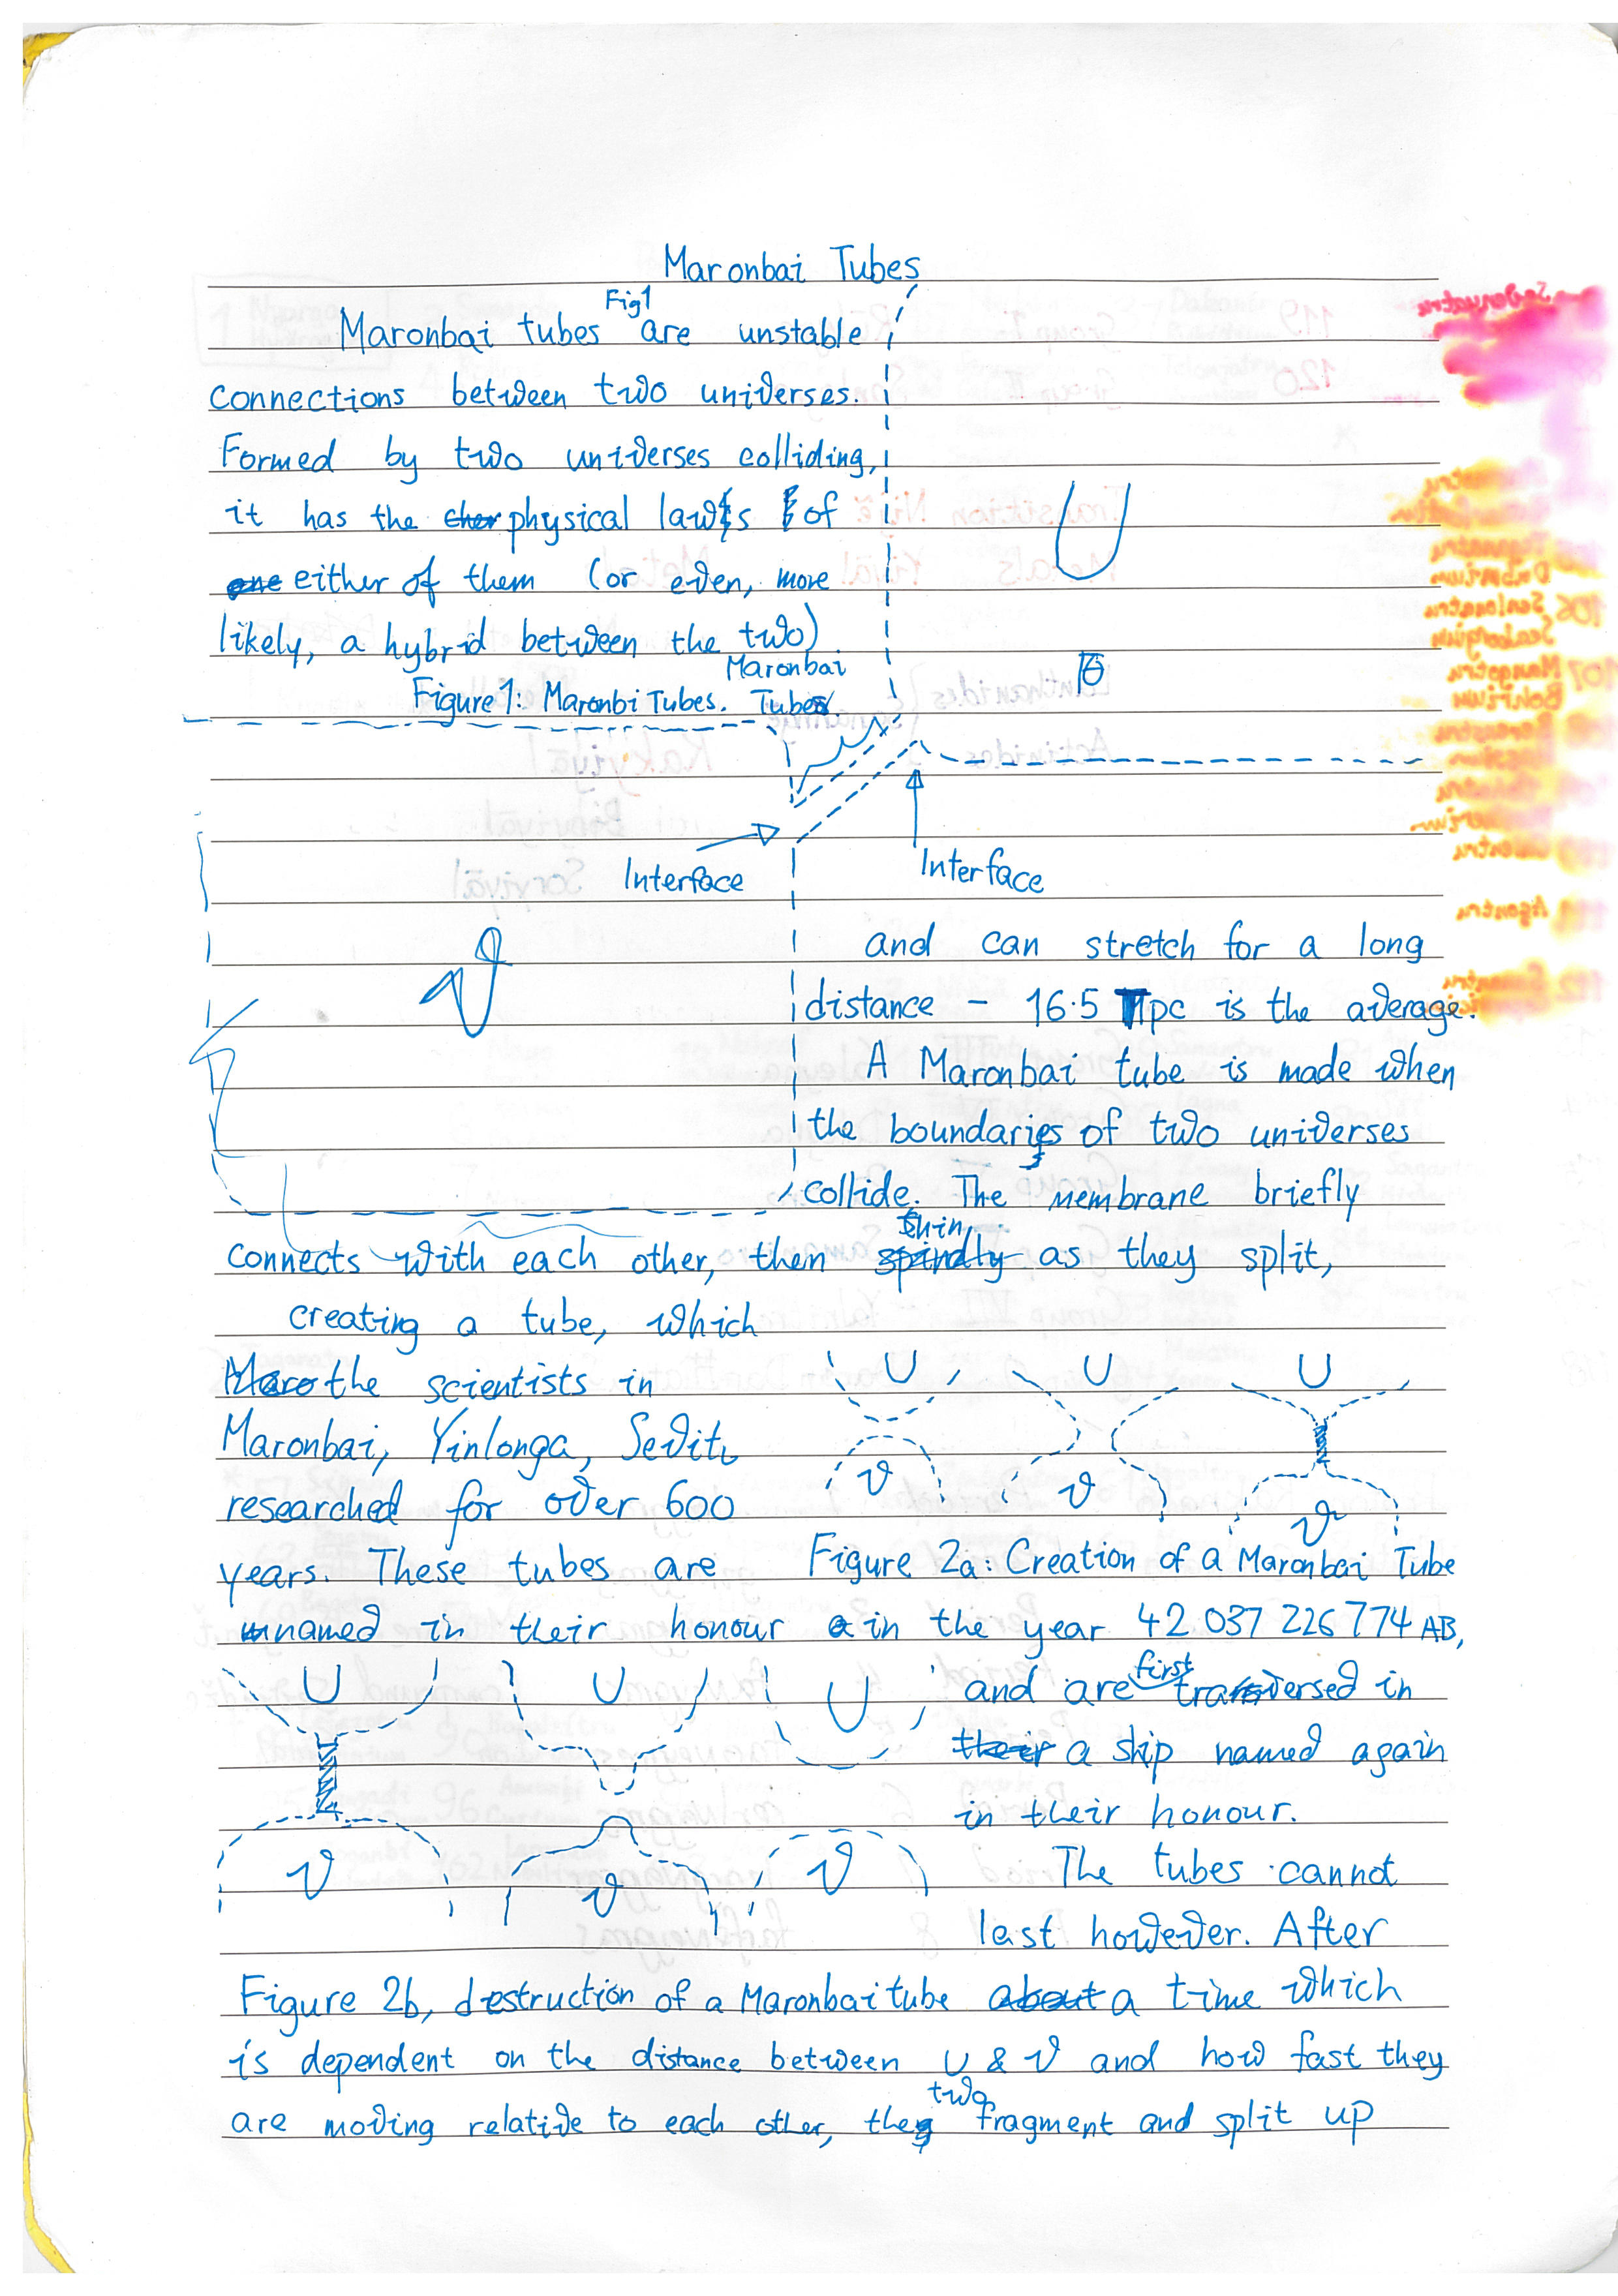 Maronbai Tubes
Fig1
Maronbai tubes are unstable
connections between two universes.
Formed by two universes colliding,
it has the physical laws of
either of them (or even, more
likely, a hybrid between the two)
Maronbai
Figure 1: Maronbi Tubes. Tube
U
Interface
Interface
and can stretch for a long
distance - 16.5 pc is the average.
A Maronbai tube is made when
the boundaries of two universes
collide. The membrane briefly
thin
connects with each other, then spindly as they split,
creating a tube, which
the scientists in
Maronbai, Yinlonga, Sevit
researched for over 600
years. These tubes are
U U U
V V V
Figure 2a: Creation of a Maronbai Tube
named in their honour in the year 42 037 226 774 AB,
U U U
V V V
and are first traversed in
their a ship named again
in their honour.
The tubes cannot
last however. After
Figure 2b, destruction of a Maronbai tube about a time which
is dependent on the distance between U & V and how fast they
two
are moving relative to each other, the fragment and split up